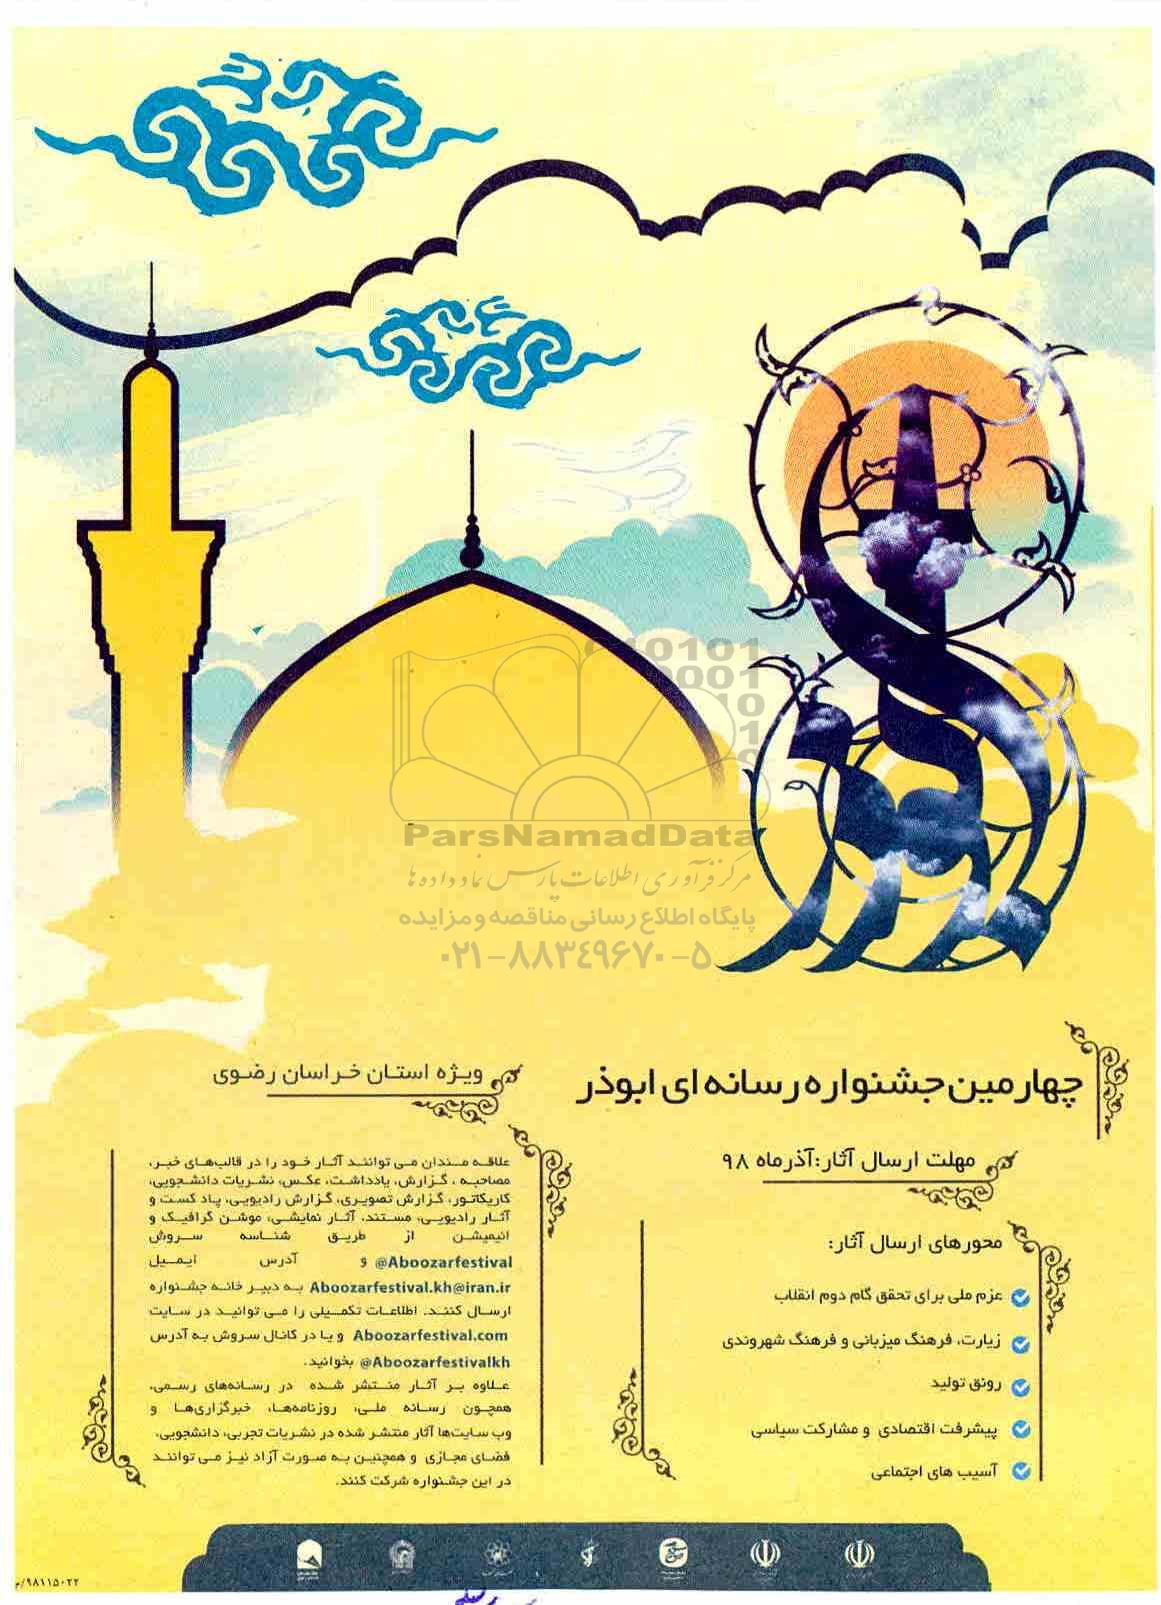 010101
0001
10
ParsNamadData
مرکز فرآوری اطلاعات پارس نماد داده ها
پایگاه اطلاع رسانی مناقصه و مزایده
۰۲۱-۸۸۳۴۹۶۷۰-۵
چهارمین جشنواره رسانه ای ابوذر
مهلت ارسال آثار: آذرماه ۹۸
محورهای ارسال آثار:
عزم ملی برای تحقق گام دوم انقلاب
زیارت، فرهنگ میزبانی و فرهنگ شهروندی
رونق تولید
پیشرفت اقتصادی و مشارکت سیاسی
آسیب های اجتماعی
ویژه استان خراسان رضوی
علاقه مندان می توانند آثار خود را در قالب‌های خبر،
مصاحبه ، گزارش، یادداشت، عکس، نشریات دانشجویی،
کاریکاتور، گزارش تصویری، گزارش رادیویی، پاد کست و
آثار رادیویی، مستند، آثار نمایشی، موشن گرافیک و
انیمیشن از طریق شناسه سروش
@Aboozarfestival و آدرس ایمیل
Aboozarfestival.kh@iran.ir به دبیر خانه جشنواره
ارسال کنند. اطلاعات تکمیلی را می توانید در سایت
Aboozarfestival.com و یا در کانال سروش به آدرس
@Aboozarfestivalkh بخوانید.
علاوه بر آثار منتشر شده در رسانه‌های رسمی،
همچون رسانه ملی، روزنامه‌ها، خبرگزاری‌ها و
وب سایت‌ها آثار منتشر شده در نشریات تجربی، دانشجویی،
فضای مجازی و همچنین به صورت آزاد نیز می توانند
در این جشنواره شرکت کنند.
۹۸۱۱۵۰۲۲/م